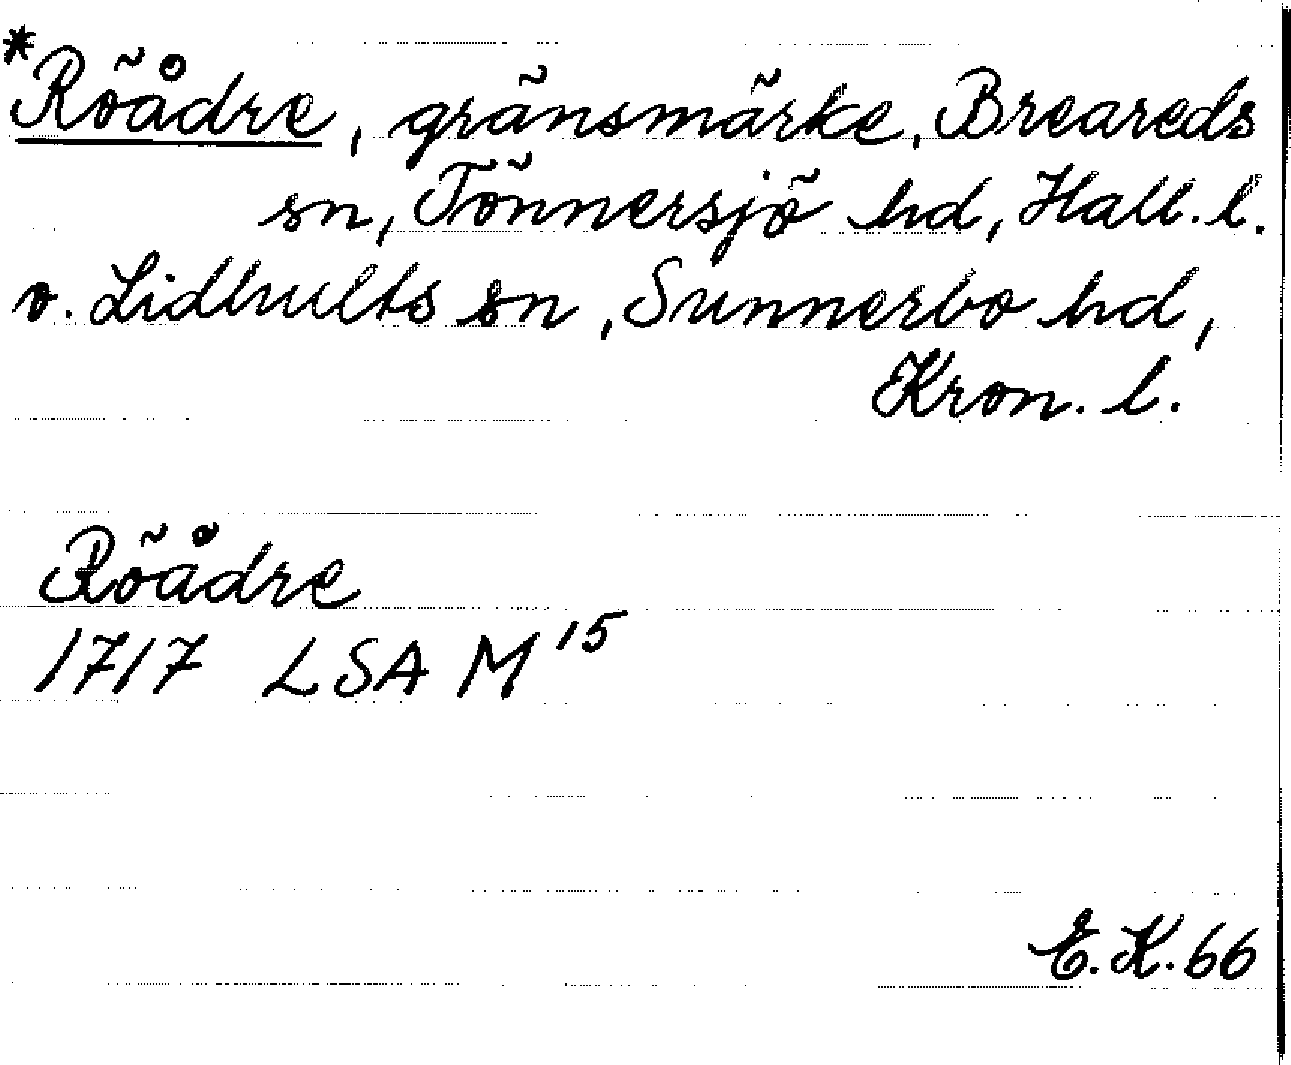 *Röådre, gränsmärke, Breareds
sn, Tönnersjö hd, Hall. l.
o. Lidhults sn, Sunnerbo hd,
Kron. l.
Röådre
1717 LSA M 15
E.K. 66